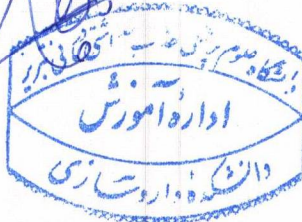 دانشگاه علوم پزشکی و خدمات بهداشتی درمانی تبریز
اداره آموزش
دانشکده داروسازی